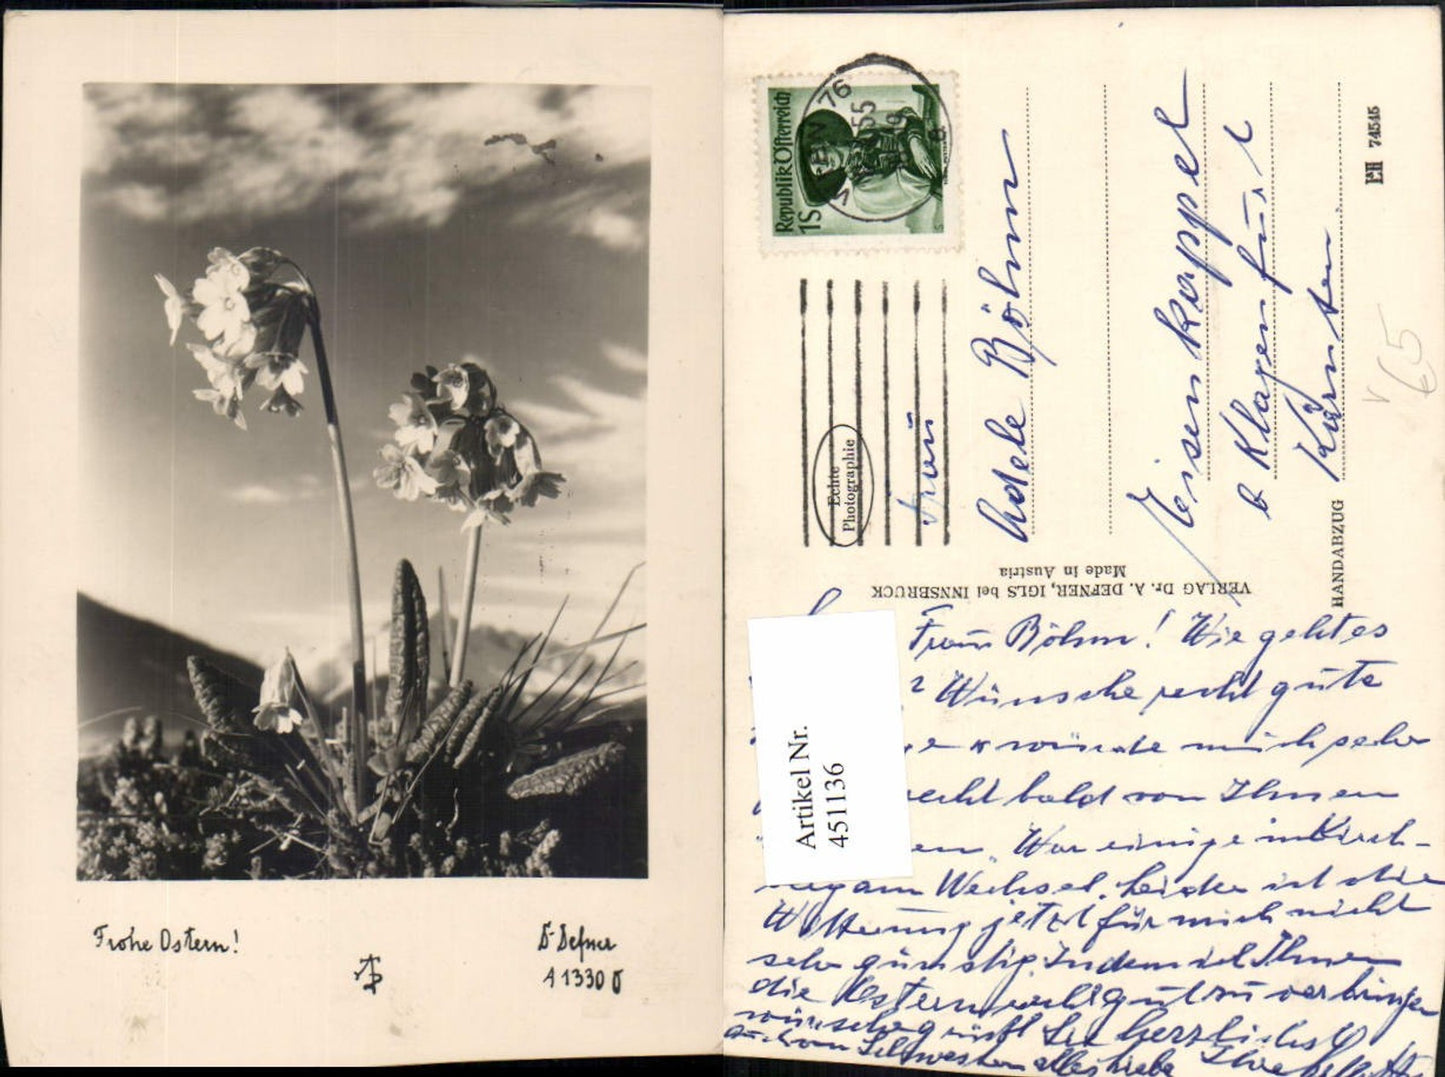 Frohe Ostern!
Dr Defner
A 1330 O
Republik Österreich
1S
WIEN 76
55
Echte
Photographie
Frau
Adele Böhm
Eisenkappel
b Klagenfurt
Kärnten
HANDABZUG
PH 74545
V
65
VERLAG Dr. A. DEFNER, IGLS bei INNSBRUCK
Made in Austria
Artikel Nr.
451136
Frau Böhm! Wie geht es
Wünsche recht gute
würde mich sehr
recht bald von Ihnen
War einige in Kirch-
am Wechsel. Leider ist die
Witterung jetzt für mich nicht
sehr günstig. Indem ich Ihnen
die Ostern recht gut zu verbringen
wünsche grüßt Sie herzlichst
auch von Schwester alles liebe Ihre